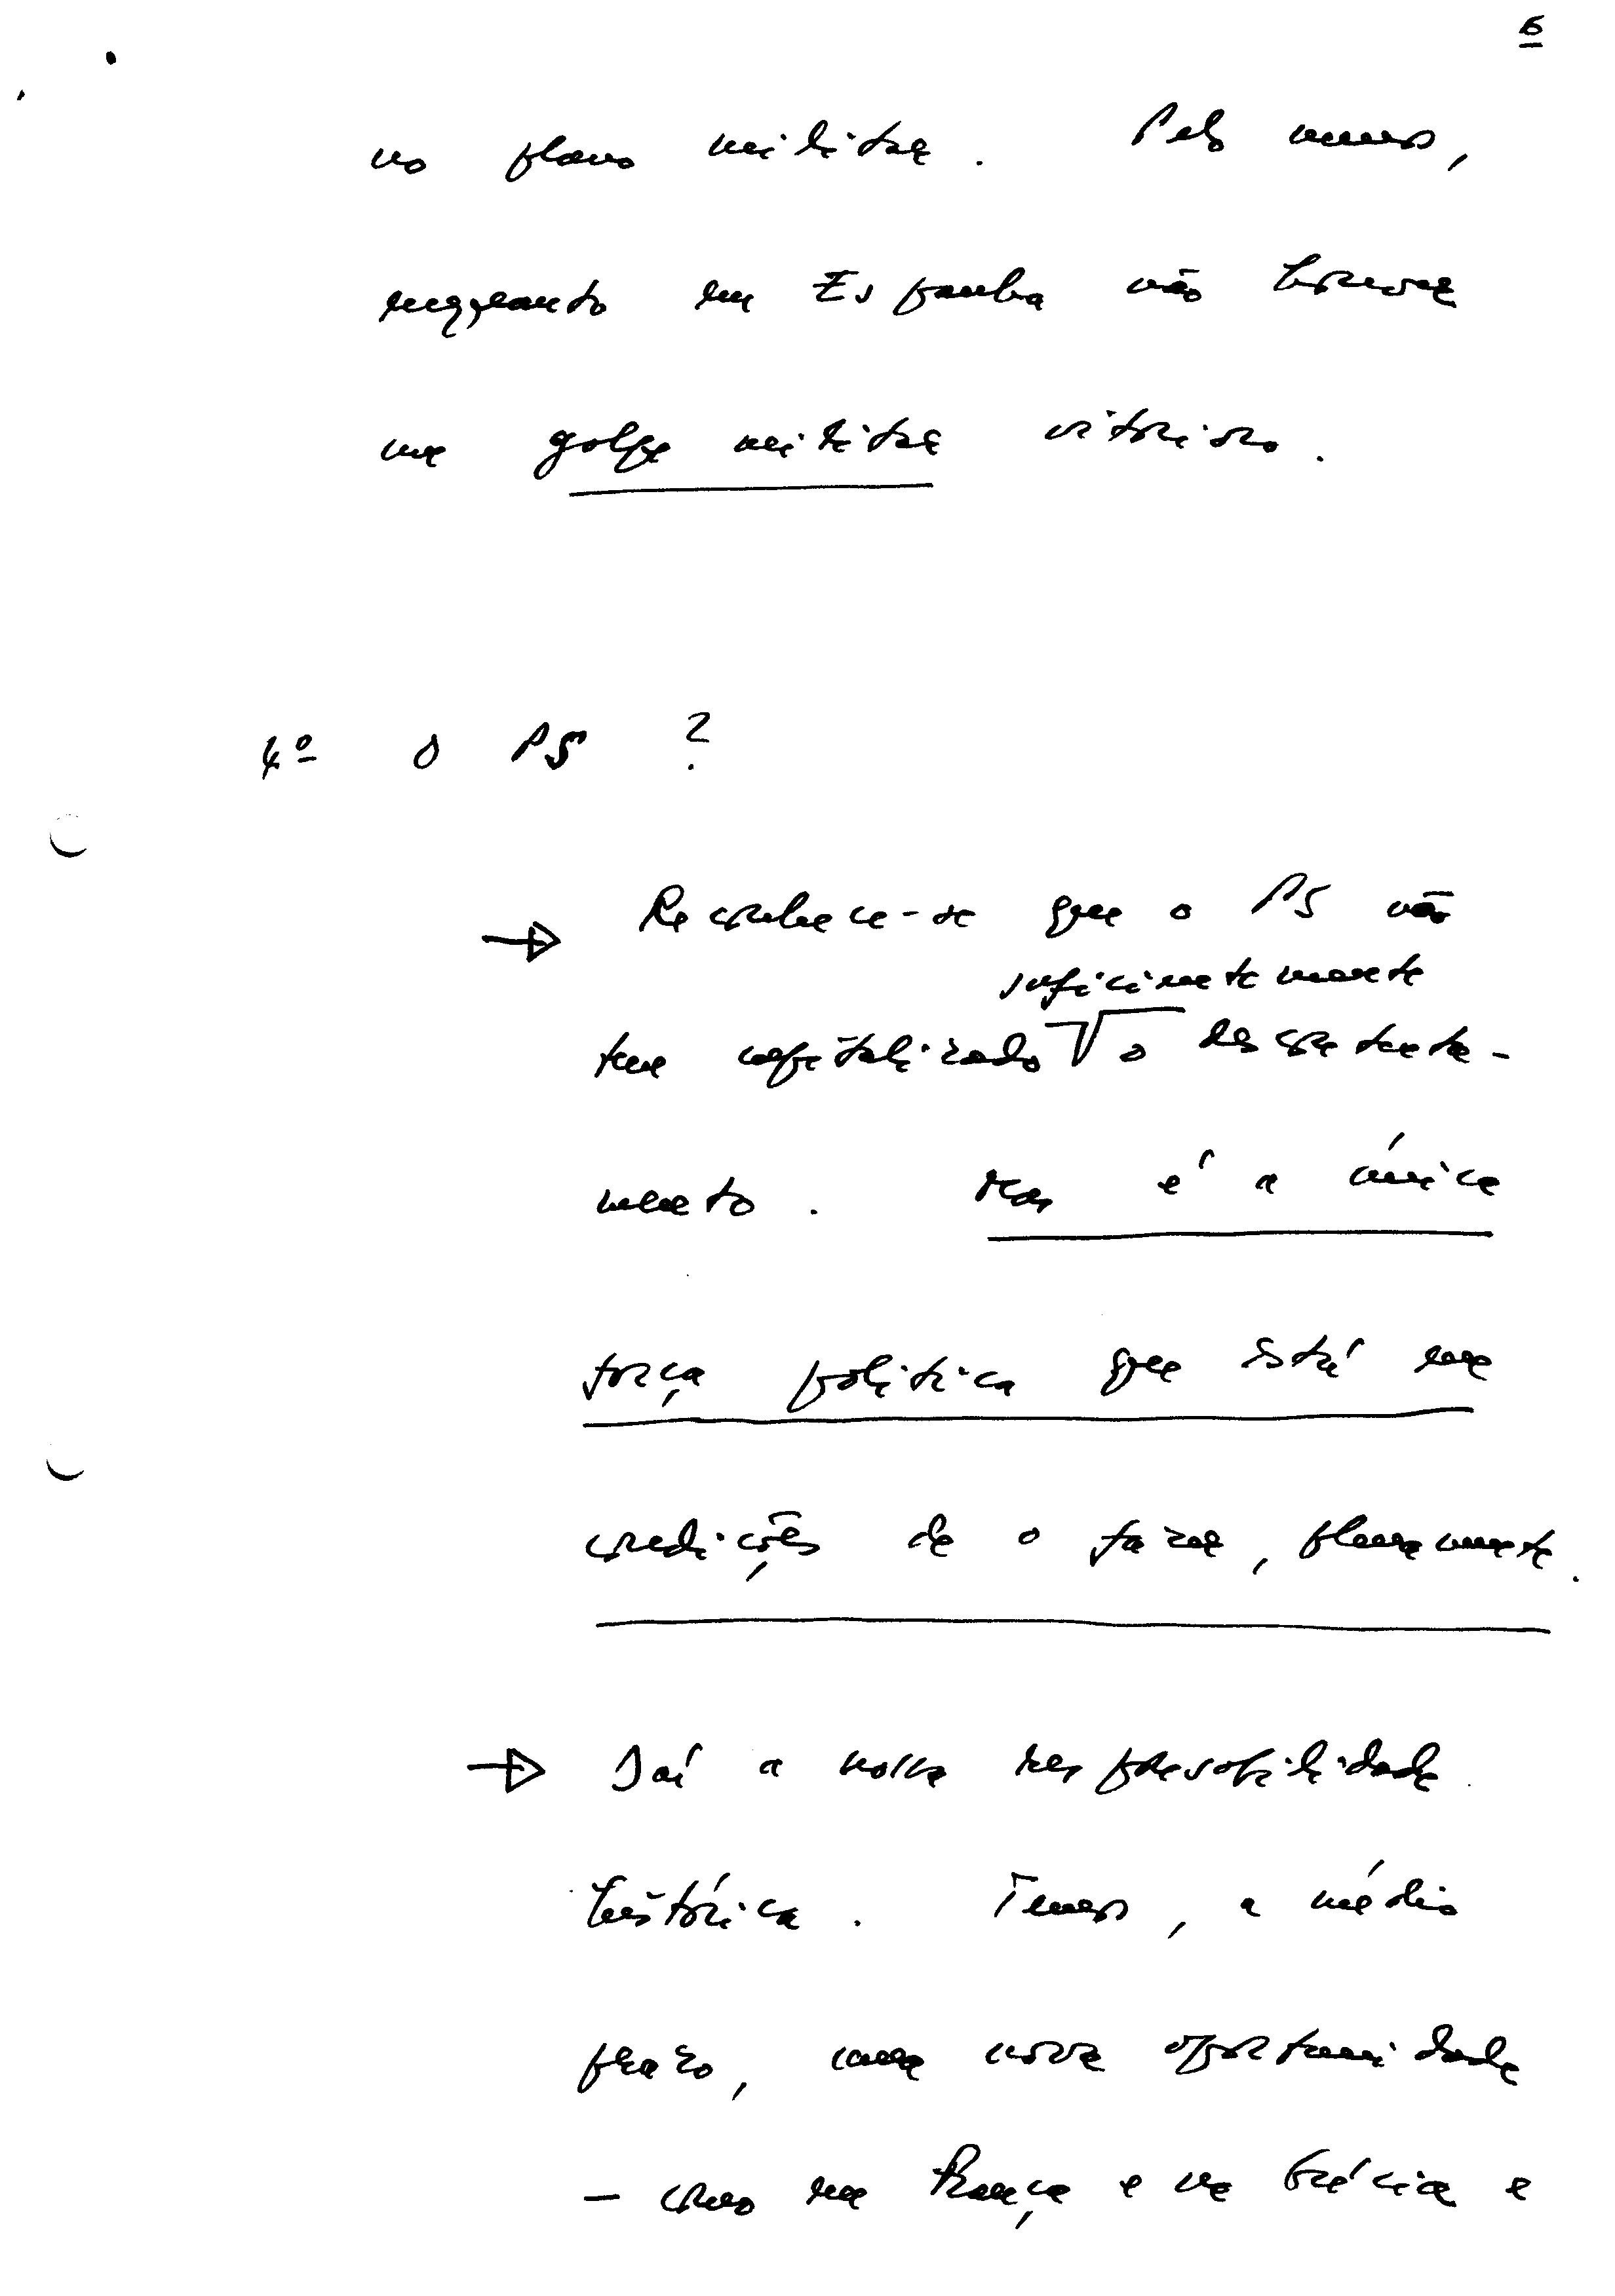 6
no plano militar. Pelo menos,
enquanto em Espanha não houver
um golpe militar vitorioso.
4º O PS ?
→ Reconhece-se que o PS não
suficientemente
tem capitalizado √ o descontenta-
mento. Mas é a única
força política que está em
condições de o fazer, plenamente.
→ Daí a nossa responsabilidade
histórica. Temos, a médio
prazo, uma nova oportunidade
- como em França e na Grécia e